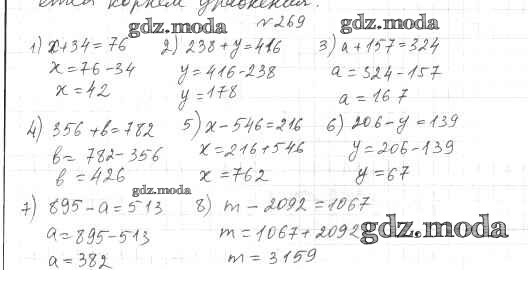 ется корнем уравнения.
№269
gdz.moda gdz.moda
1) x+34=76 2) 238+y=416 3) a+157=324
x=76-34 y=416-238 a=324-157
x=42 y=178 a=167
4) 356+в=782 5) x-546=216 6) 206-y=139
в= 782-356 x=216+546 y=206-139
в=426 x=762 y=67
gdz.moda
7) 895-a=513 8) m-2092=1067
a=895-513 m=1067+2092 gdz.moda
a=382 m=3159